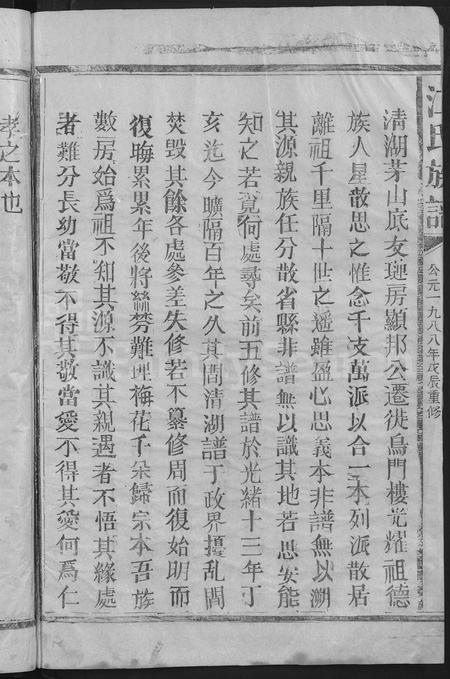 江氏族譜
公元一九八八年戊辰重修
清湖茅山底友璭房顯邦公遷徙烏門樓光耀祖德
族人星散思之惟念千支萬派以合一本列派散居
離祖千里隔十世之遥雖盈心思義本非譜無以溯
其源親族任分散省縣非譜無以識其地若思安能
知之若覓何處尋矣前五修其譜於光緒十三年丁
亥迄今曠隔百年之久其間清湖譜于政界擾乱間
焚毀其餘各處參差失修若不纂修周而復始明而
復晦累累年後將絲棼難理梅花千朵歸宗本吾族
數房始爲祖不知其源不識其親遇者不悟其緣處
者難分長幼當敬不得其敬當愛不得其愛何爲仁
孝之本也